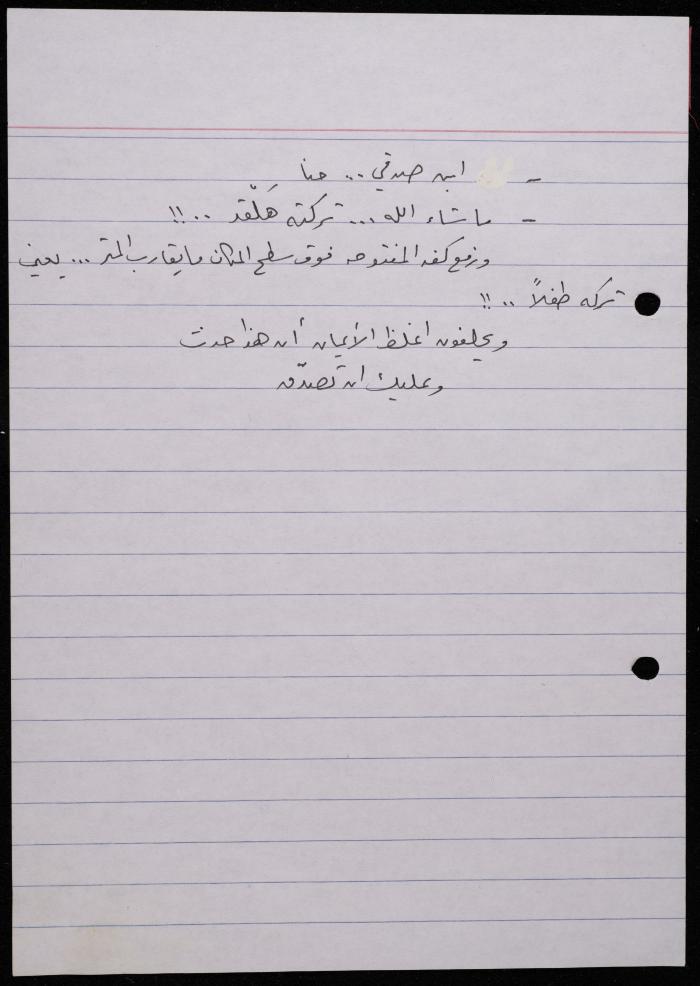 - ابن صدقي ... حنا
- ما شاء الله ... تركته هَلّقد .. !!
ورفع كفه المفتوحه فوق سطح المكان ما يقارب المتر ... يعني
تركه طفلاً .. !!
ويحلفون اغلظ الأيمان أن هذا حدث
وعليك ان تصدّق